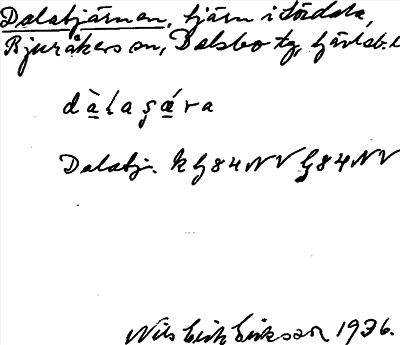 Dalatjärnen, tjärn i Sördala,
Bjuråkers sn, Delsbo tg, Gävleb. l
dàlaşára
Dalatj. k G84NV G84NV
Nils Erik Eriksson 1936.